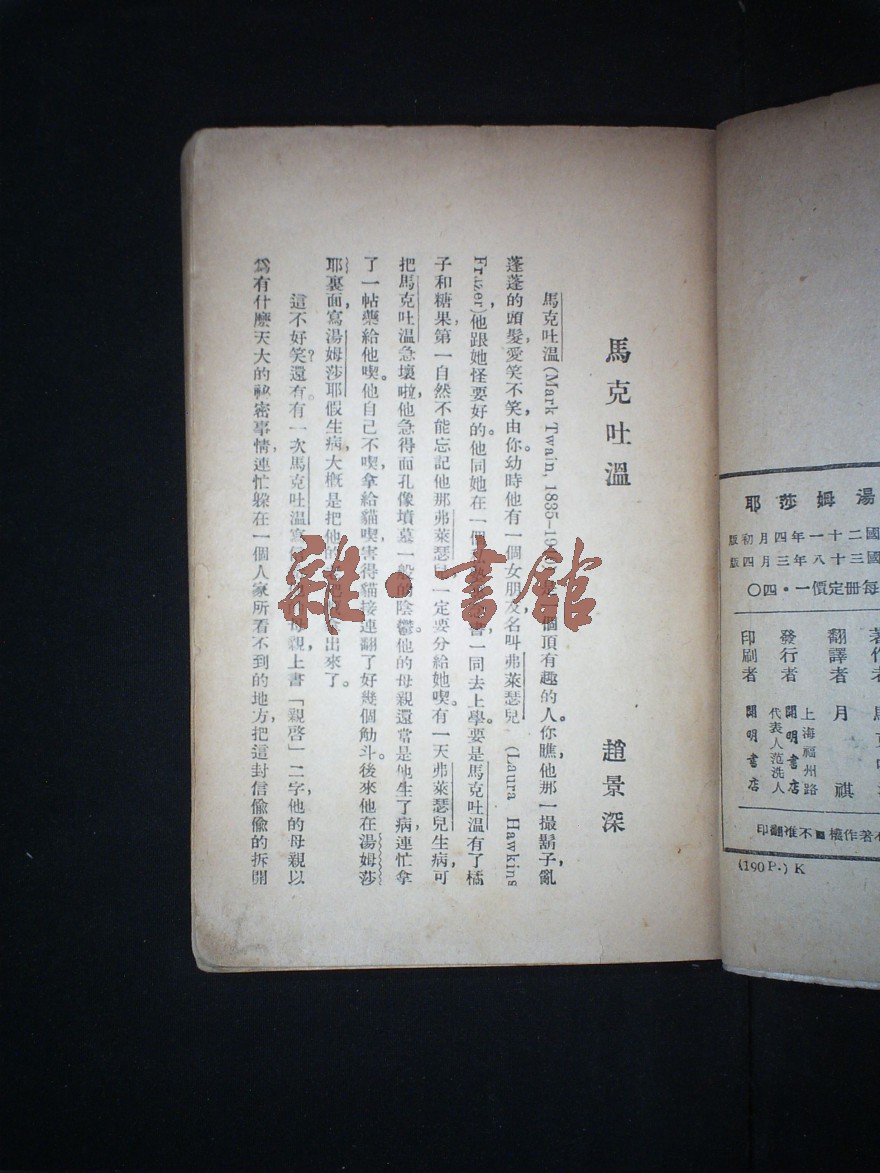 馬克吐溫
趙景深
馬克吐溫(Mark Twain, 1835-19 個頂有趣的人。你瞧他那一撮鬍子,亂
蓬蓬的頭髮,愛笑不笑,由你。幼時他有一個女朋友,名叫弗萊瑟兒 (Laura Hawkins
Frazer),他跟她怪要好的。他同她在一個 書,一同去上學。要是馬克吐溫有了橘
子和糖果,第一自然不能忘記他那弗萊瑟兒,一定要分給她喫。有一天弗萊瑟兒生病,可
把馬克吐溫急壞啦,他急得面孔像墳墓一般的陰鬱。他的母親還當是他生了病,連忙拿
了一帖藥給他喫。他自己不喫,拿給貓喫,害得貓接連翻了好幾個觔斗。後來他在湯姆莎
耶裏面,寫湯姆莎耶假生病,大概是把他的 出來了。
這不好笑?還有。有一次馬克吐溫寫 母親,上書「親啓」二字,他的母親以
爲有什麽天大的祕密事情,連忙躲在一個人家所看不到的地方,把這封信偸偸的拆開
雜·書館
湯姆莎耶
國二十一年四月初版
國三十八年三月四版
每冊定價一·四〇
著作者
翻譯者 月祺
發行者 開明書店
上海福州路
代表人范洗人
印刷者 開明書店
著作權■不准翻印
(190 P.) K